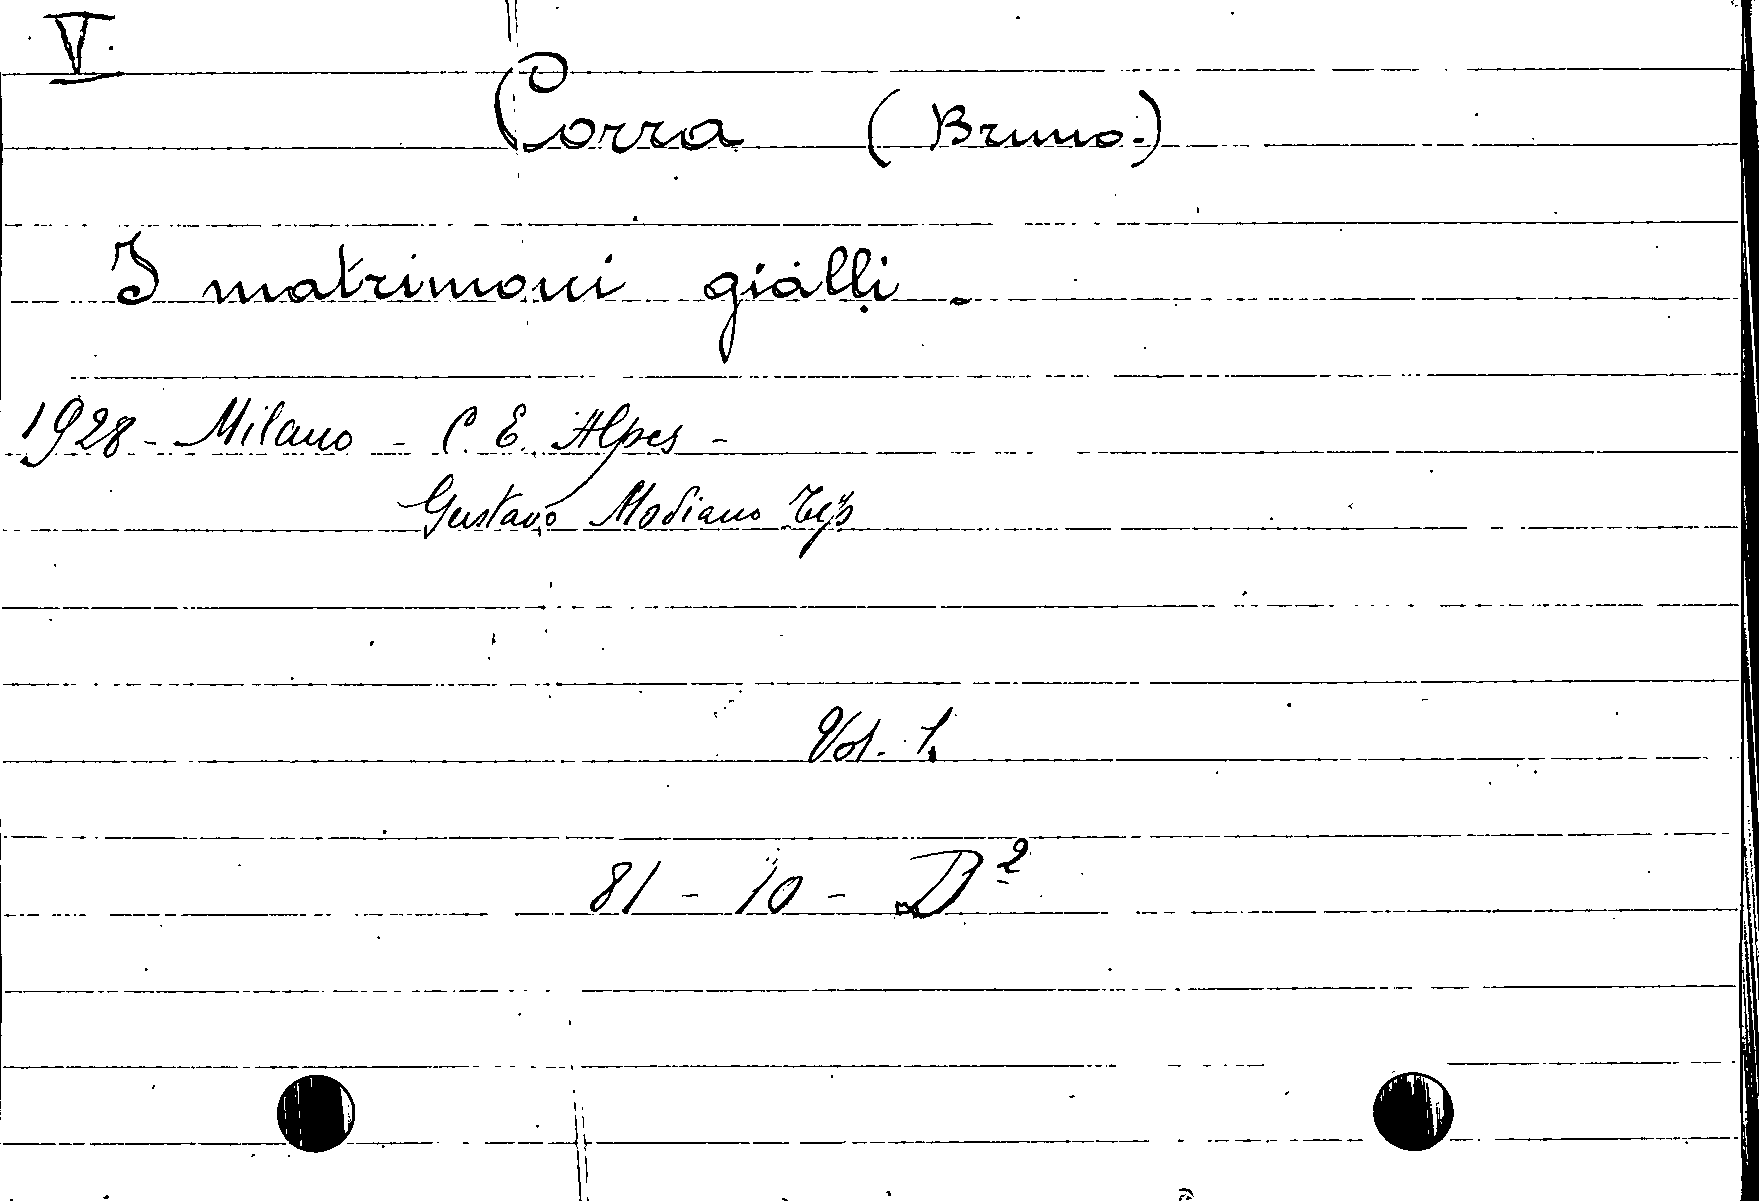 V
Corra (Bruno.)
I matrimoni gialli.
1928 - Milano - C. E. Alpes -
Gustavo Modiano Tip
Vol. 1.
81 - 10 - D²